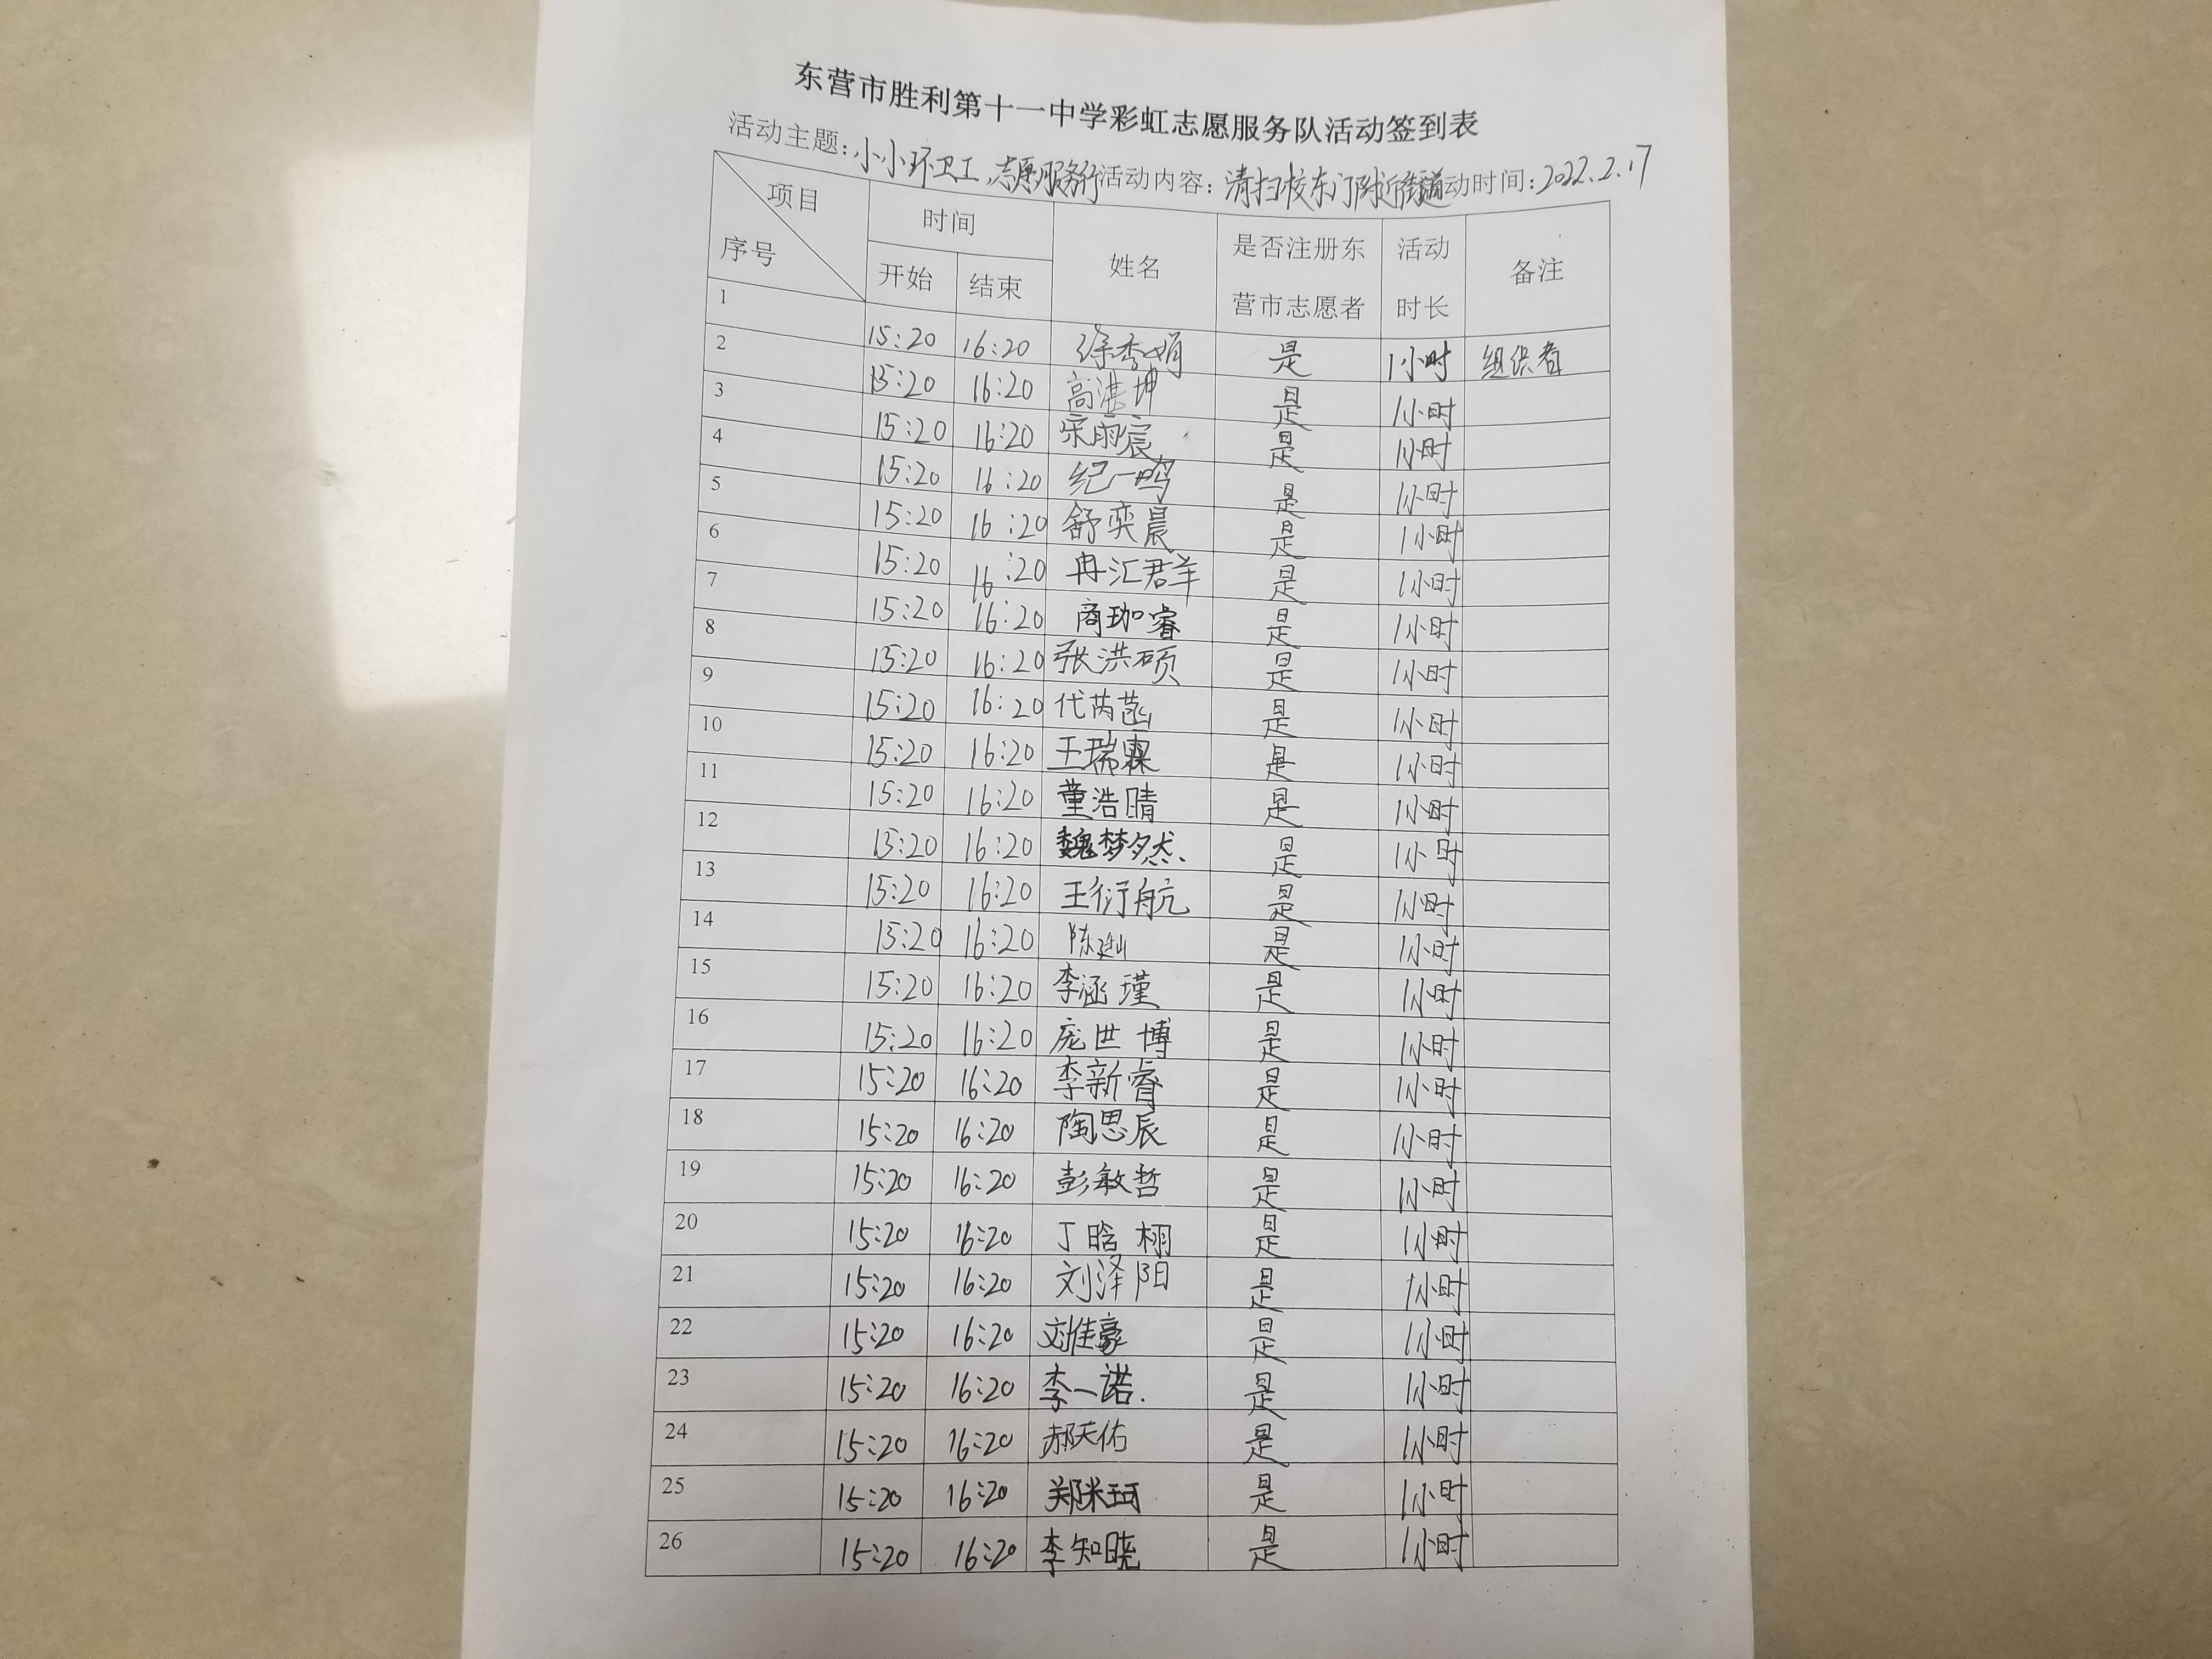 东营市胜利第十一中学彩虹志愿服务队活动签到表
活动主题:小小环卫工,志愿服务行 活动内容:清扫校东门附近街道 活动时间:2022.2.17
项目 序号 时间 姓名 是否注册东营市志愿者 活动时长 备注
开始 结束
1 15:20 16:20 徐秀娟 是 1小时 组织者
2 15:20 16:20 高湛坤 是 1小时
3 15:20 16:20 宋雨宸 是 1小时
4 15:20 16:20 纪一鸣 是 1小时
5 15:20 16:20 舒奕晨 是 1小时
6 15:20 16:20 冉汇群 是 1小时
7 15:20 16:20 商珈睿 是 1小时
8 15:20 16:20 张洪硕 是 1小时
9 15:20 16:20 代芮菡 是 1小时
10 15:20 16:20 王瑞霖 是 1小时
11 15:20 16:20 董浩晴 是 1小时
12 15:20 16:20 魏梦然 是 1小时
13 15:20 16:20 王衍航 是 1小时
14 15:20 16:20 陈 是 1小时
15 15:20 16:20 李涵瑾 是 1小时
16 15:20 16:20 庞世博 是 1小时
17 15:20 16:20 李新睿 是 1小时
18 15:20 16:20 陶思辰 是 1小时
19 15:20 16:20 彭敏哲 是 1小时
20 15:20 16:20 丁晗栩 是 1小时
21 15:20 16:20 刘泽阳 是 1小时
22 15:20 16:20 刘佳豪 是 1小时
23 15:20 16:20 李一诺. 是 1小时
24 15:20 16:20 郝天佑 是 1小时
25 15:20 16:20 郑米珂 是 1小时
26 15:20 16:20 李知晓 是 1小时